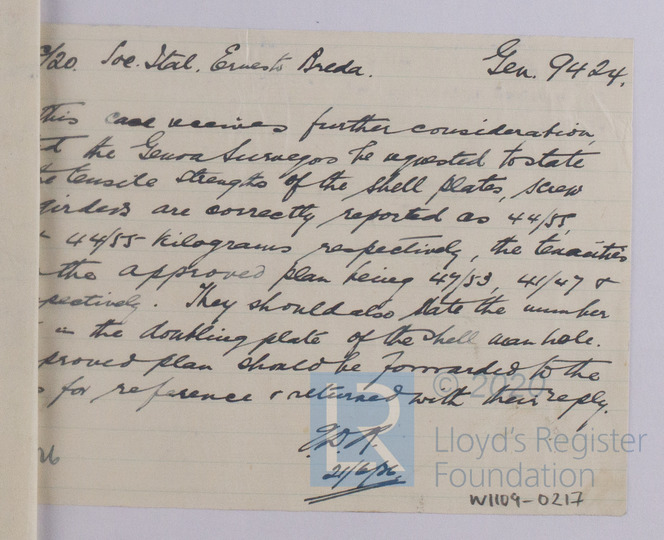 /20. Soc. Ital. Ernesto Breda. Gen. 9424.
this case receives further consideration,
the Genoa Surveyors be requested to state
tensile strengths of the shell plates, screw
girders are correctly reported as 44/55,
44/55 Kilograms respectively, the tenacities
the approved plan being 47/53, 41/47 &
pectively. They should also state the number
in the doubling plate of the shell manhole.
proved plan should be forwarded to the
s for reference & returned with their reply.
21/6/26.
26
© 2020
LR
Lloyd's Register
Foundation
W1109-0217